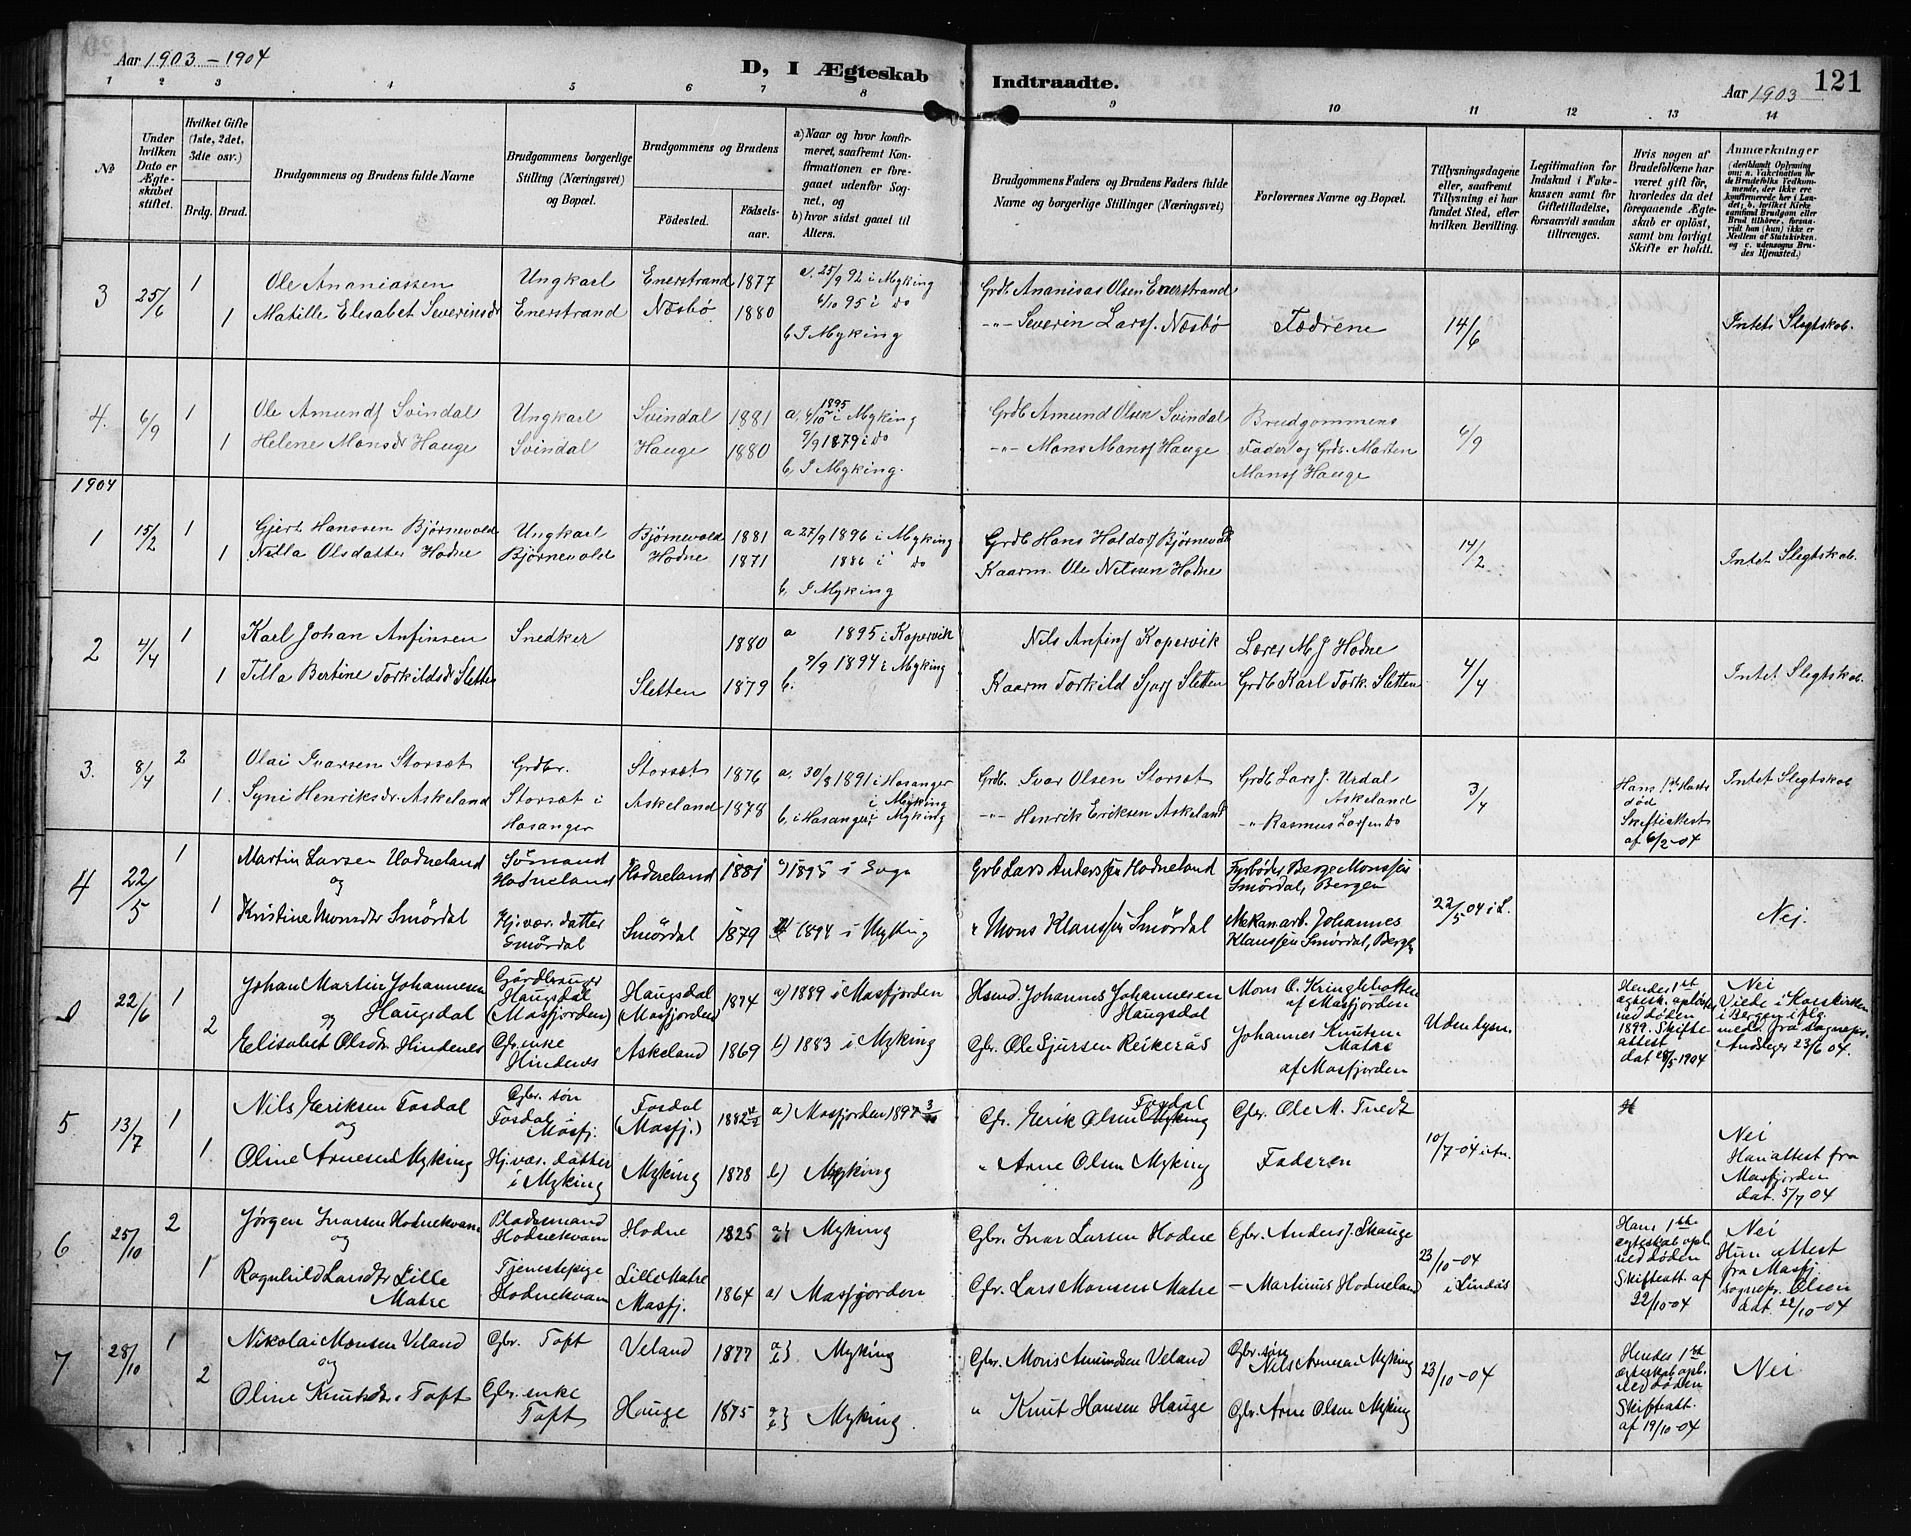 Aar 1903 - 1904
D, I Ægteskab Indtraadte.
Aar 1903
121
1 2 3 4 5 6 7 8 9 10 11 12 13 14
№
Under hvilken Dato er Ægteskabet stiftet.
Hvilket Gifte (1ste, 2det, 3die osv.)
Brdg. Brud.
Brudgommens og Brudens fulde Navne
Brudgommens borgerlige Stilling (Næringsvei) og Bopæl.
Brudgommens og Brudens
Fødested.
Fødselsaar.
a) Naar og hvor konfirmeret, saafremt Konfirmationen er foregaaet udenfor Sognet, og
b) hvor sidst gaaet til Alters.
Brudgommens Faders og Brudens Faders fulde Navne og borgerlige Stillinger (Næringsvei)
Forlovernes Navne og Bopæl.
Tillysningsdagene eller, saafremt Tillysning ei har fundet Sted, efter hvilken Bevilling.
Legitimation for Indskud i Enkekassen samt for Giftetilladelse, forsaavidt saadan tiltrænges.
Hvis nogen af Brudefolkene har været gift før, hvorledes da det foregaaende Ægteskab er opløst, samt om lovligt Skifte er holdt.
Anmærkninger
(deriblandt Oplysning om: a. Vakcination for de Brudefolks Vedkommende, der ikke ere konfirmerede her i Landet; b. hvilket Kirkesamfund Brudgom eller Brud tilhører, forsaavidt han (hun) ikke er Medlem af Statskirken, og c. udensogns Brudes Hjemsted.)
3 25/6 1 Ole Ananiassen Ungkarl Enerstrand 1877 a, 25/9 92 i Myking Grdb. Ananias Olsen Enerstrand
1 Matille Elisabet Severinsdr Enerstrand Næsbø 1880 4/10 95 i do -"- Severin Larss. Næsbø Fædrene 14/6 Intet Slegtskab.
b. I Myking
4. 6/9 1 Ole Amunds Svindal Ungkarl Svindal 1881 a, 4/10 1895 i Myking Grdb Amund Olsen Svindal Brudgommens
1 Helene Monsdr Hauge Svindal Hauge 1880 9/9 1879 i do -"- Mons Monss Hauge Fader og Grdb. Marten 6/9
b, I Myking. Monss Hauge
1904
1 15/2 1 Gjert Hanssen Bjørnevold Ungkarl Bjørnevold 1881 a 27/9 1896 i Myking Grdb Hans Haldors Bjørnevold 14/2
1 Nilla Olsdatter Hodne Bjørnevold Hodne 1871 1886 i do Kaarm. Ole Nilssen Hodne Intet Slegtskab.
b, I Myking
2 4/4 1 Karl Johan Anfinsen Snedker 1880 a 1895 i Kopervik Nils Anfins Kopervik Lærer M J Hodne
1 Tilla Bertine Torkildsdr Sletten Sletten 1879 9/9 1894 i Myking Kaarm Torkild Sjurs Sletten Grdb Karl Tork. Sletten 4/4 Intet Slegtskab.
b.
3. 8/4 2 Olai Ivarsen Storset Grdbr. Storset 1876 a, 30/8 1891 i Hosanger Grdb. Ivar Olsen Storset Grdb Lars J. Urdal Askeland 3/4 Hans 1ste død Skifteattest af 6/2-04 Intet Slegtskab
1. Syni Henriksdr. Askeland Storset i Hosanger Askeland 1878 i Myking -"- Henrik Eriksen Askeland -"- Rasmus Larsen Do
b, i Hosanger, i Myking
4 22/5 1 Martin Larsen Hodneland Sømand Hodneland Hodneland 1881 a) 1895 i Grb Lars Anderssen Hodneland Fyrbøder Berge Monssen Smördal, Bergen
og
1 Kristine Monsdtr Smördal Hj. vær. datter Smördal Smördal 1879 1894 i Myking " Mons Klaussen Smördal Mekan arb. Johannes Klaussen Smördal, Bergen 22/5 04 i L. Nej.
22/6 1 Johan Martin Johannesen Haugsdal Gårdbruger Haugsdal (Masfjorden) Haugsdal (Masfjorden) 1874 a) 1889 i Masfjorden Hsmd. Johannes Johannesen Haugsdal Mons O. Kringlebotten af Masfjorden Uden lysn. Hendes 1st egtesk. opløst ved døden 1899. Skifteattest dat 28/5 1904 Nei Viede i Korskirken i Bergen
og
2 Elisabet Olsdtr Hindenes Gbr. enke Hindenes Askeland 1869 b) 1883 i Myking Gbr. Ole Sjursen Reikerås Johannes Knutsen Matre af Masfjorden 23/6 04.
5 13/7 1 Nils Eriksen Fosdal Gbr. søn Fosdal i Masfj. Fosdal (Masfj.) 1882 a) Masfjorden 1897 Gbr. Erik Olsen Fosdal Gbr. Ole M. Tvedt
og
1 Oline Arnesen Myking Hj. vær. datter i Myking Myking 1878 b) Myking " Arne Olsen Myking Faderen 10/7-04 Nei Han attest fra Masfjorden dat. 5/7 04
6 25/10 2 Jørgen Ivarsen Hodnekvam Pladsmand Hodnekvam Hodne 1825 a) b) Myking Gbr. Ivar Larsen Hodne Gbr. Anders J. Skauge 23/10-04 i Lindås Hans 1ste egteskab opl. ved døden Skifteatt. af 22/10-04 Nei Hun attest fra Masfj. sognepr. Olsen dat. 22/10-04
og
1 Ragnhild Larsdtr Lille Matre Tjenestepige Hodnekvam Lille Matre Masfj. 1864 a) Masfjorden Gbr. Lars Monsen Matre - Martinus Hodneland
7 28/10 1 Nikolai Monsen Veland Gbr. Toft Veland 1877 a) b) Myking Gbr. Mons Amundsen Veland Gbr. søn Nils Arnesen Myking 23/10-04 Hendes 1ste egteskab opl. ved døden Skifteatt. af 19/10-04 Nei
og
2 Oline Knutsdtr. Toft Gbr. enke Toft Hauge 1875 a) b) Myking " Knut Hansen Hauge Gbr. Arne Olsen Myking